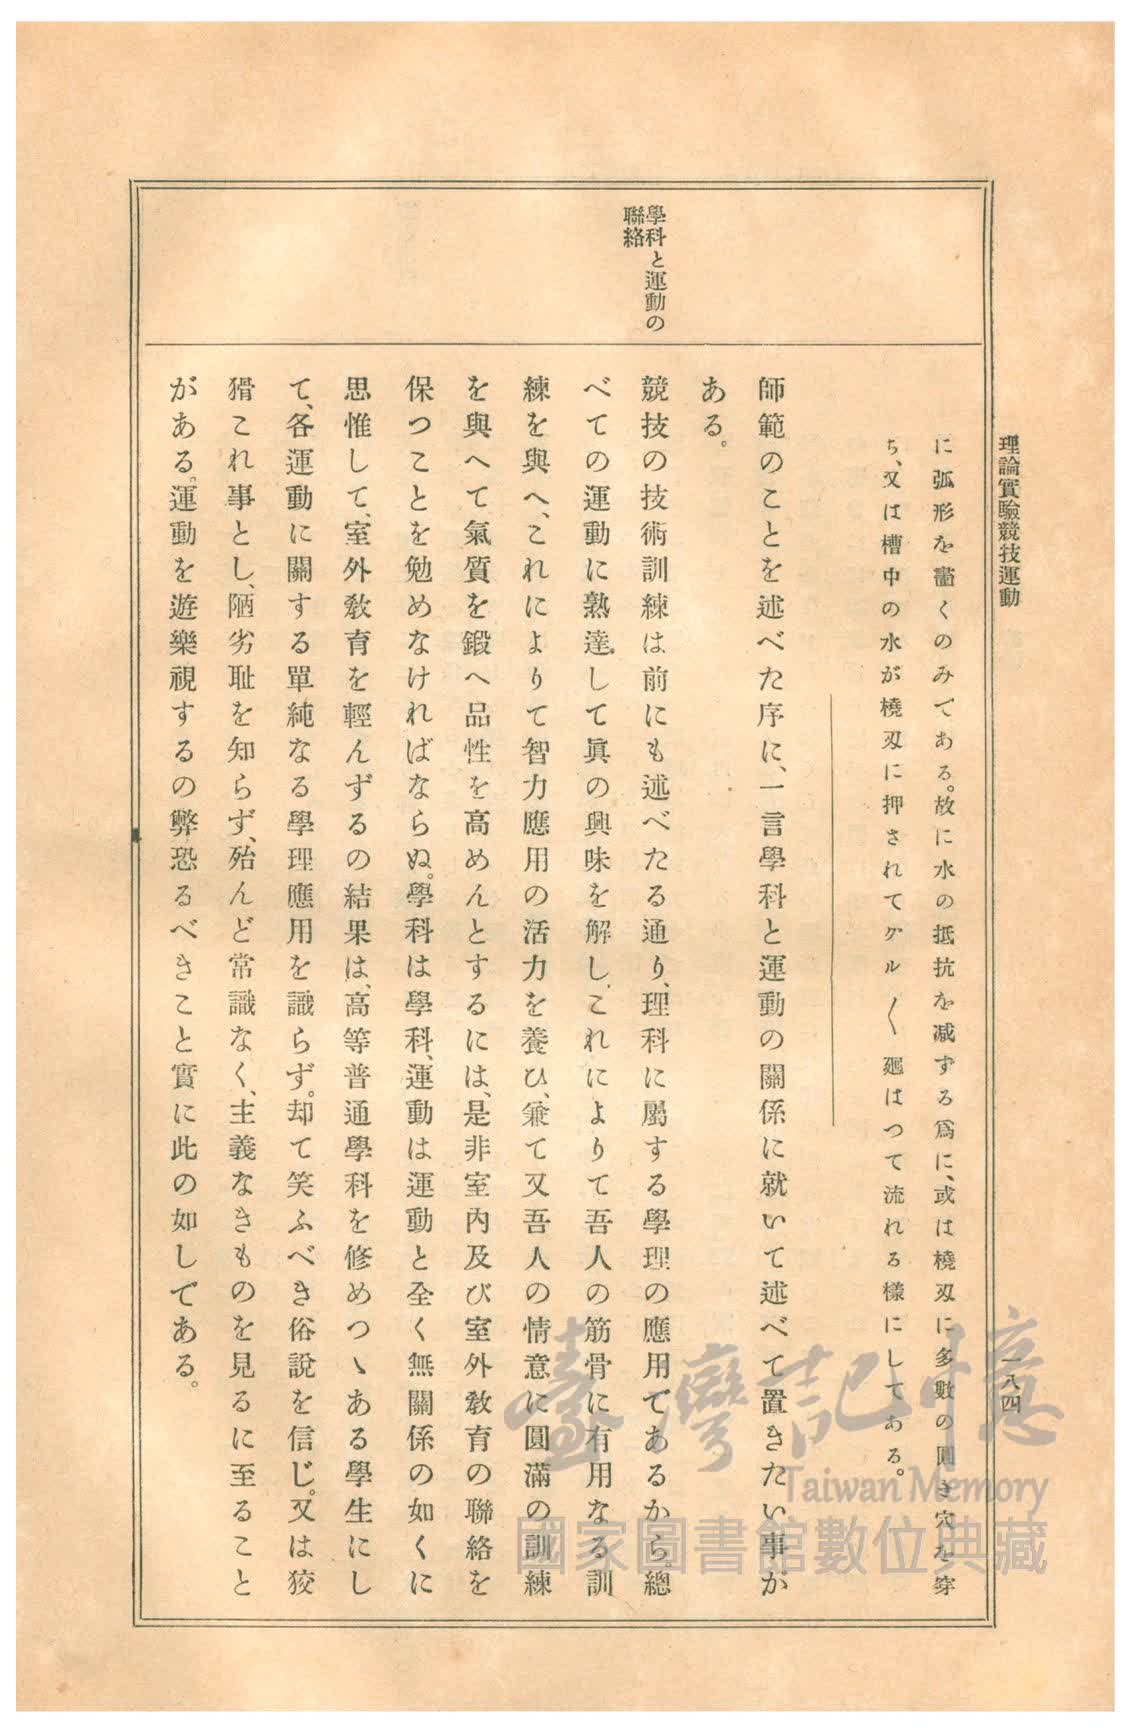 理論實驗競技運動
一八四
に弧形を畫くのみである。故に水の抵抗を減ずる爲に、或は橈刄に多數の圓き穴を穿
ち、又は槽中の水が橈刄に押されてグル〱廻はつて流れる樣にしてある。
學科と運動の
聯絡
師範のことを述べた序に、一言學科と運動の關係に就いて述べて置きたい事が
ある。
競技の技術訓練は前にも述べたる通り、理科に屬する學理の應用であるから。總
べての運動に熟達して眞の興味を解し、これによりて吾人の筋骨に有用なる訓
練を與へ、これによりて智力應用の活力を養ひ、兼て又吾人の情意に圓滿の訓練
を與へて氣質を鍛へ品性を高めんとするには、是非室內及び室外敎育の聯絡を
保つことを勉めなければならぬ。學科は學科、運動は運動と全く無關係の如くに
思惟して、室外敎育を輕んずるの結果は、高等普通學科を修めつゝある學生にし
て、各運動に關する單純なる學理應用を識らず。却て笑ふべき俗說を信じ。又は狡
猾これ事とし、陋劣耻を知らず、殆んど常識なく、主義なきものを見るに至ること
がある。運動を遊樂視するの弊恐るべきこと實に此の如しである。
臺灣記憶
Taiwan Memory
國家圖書館數位典藏